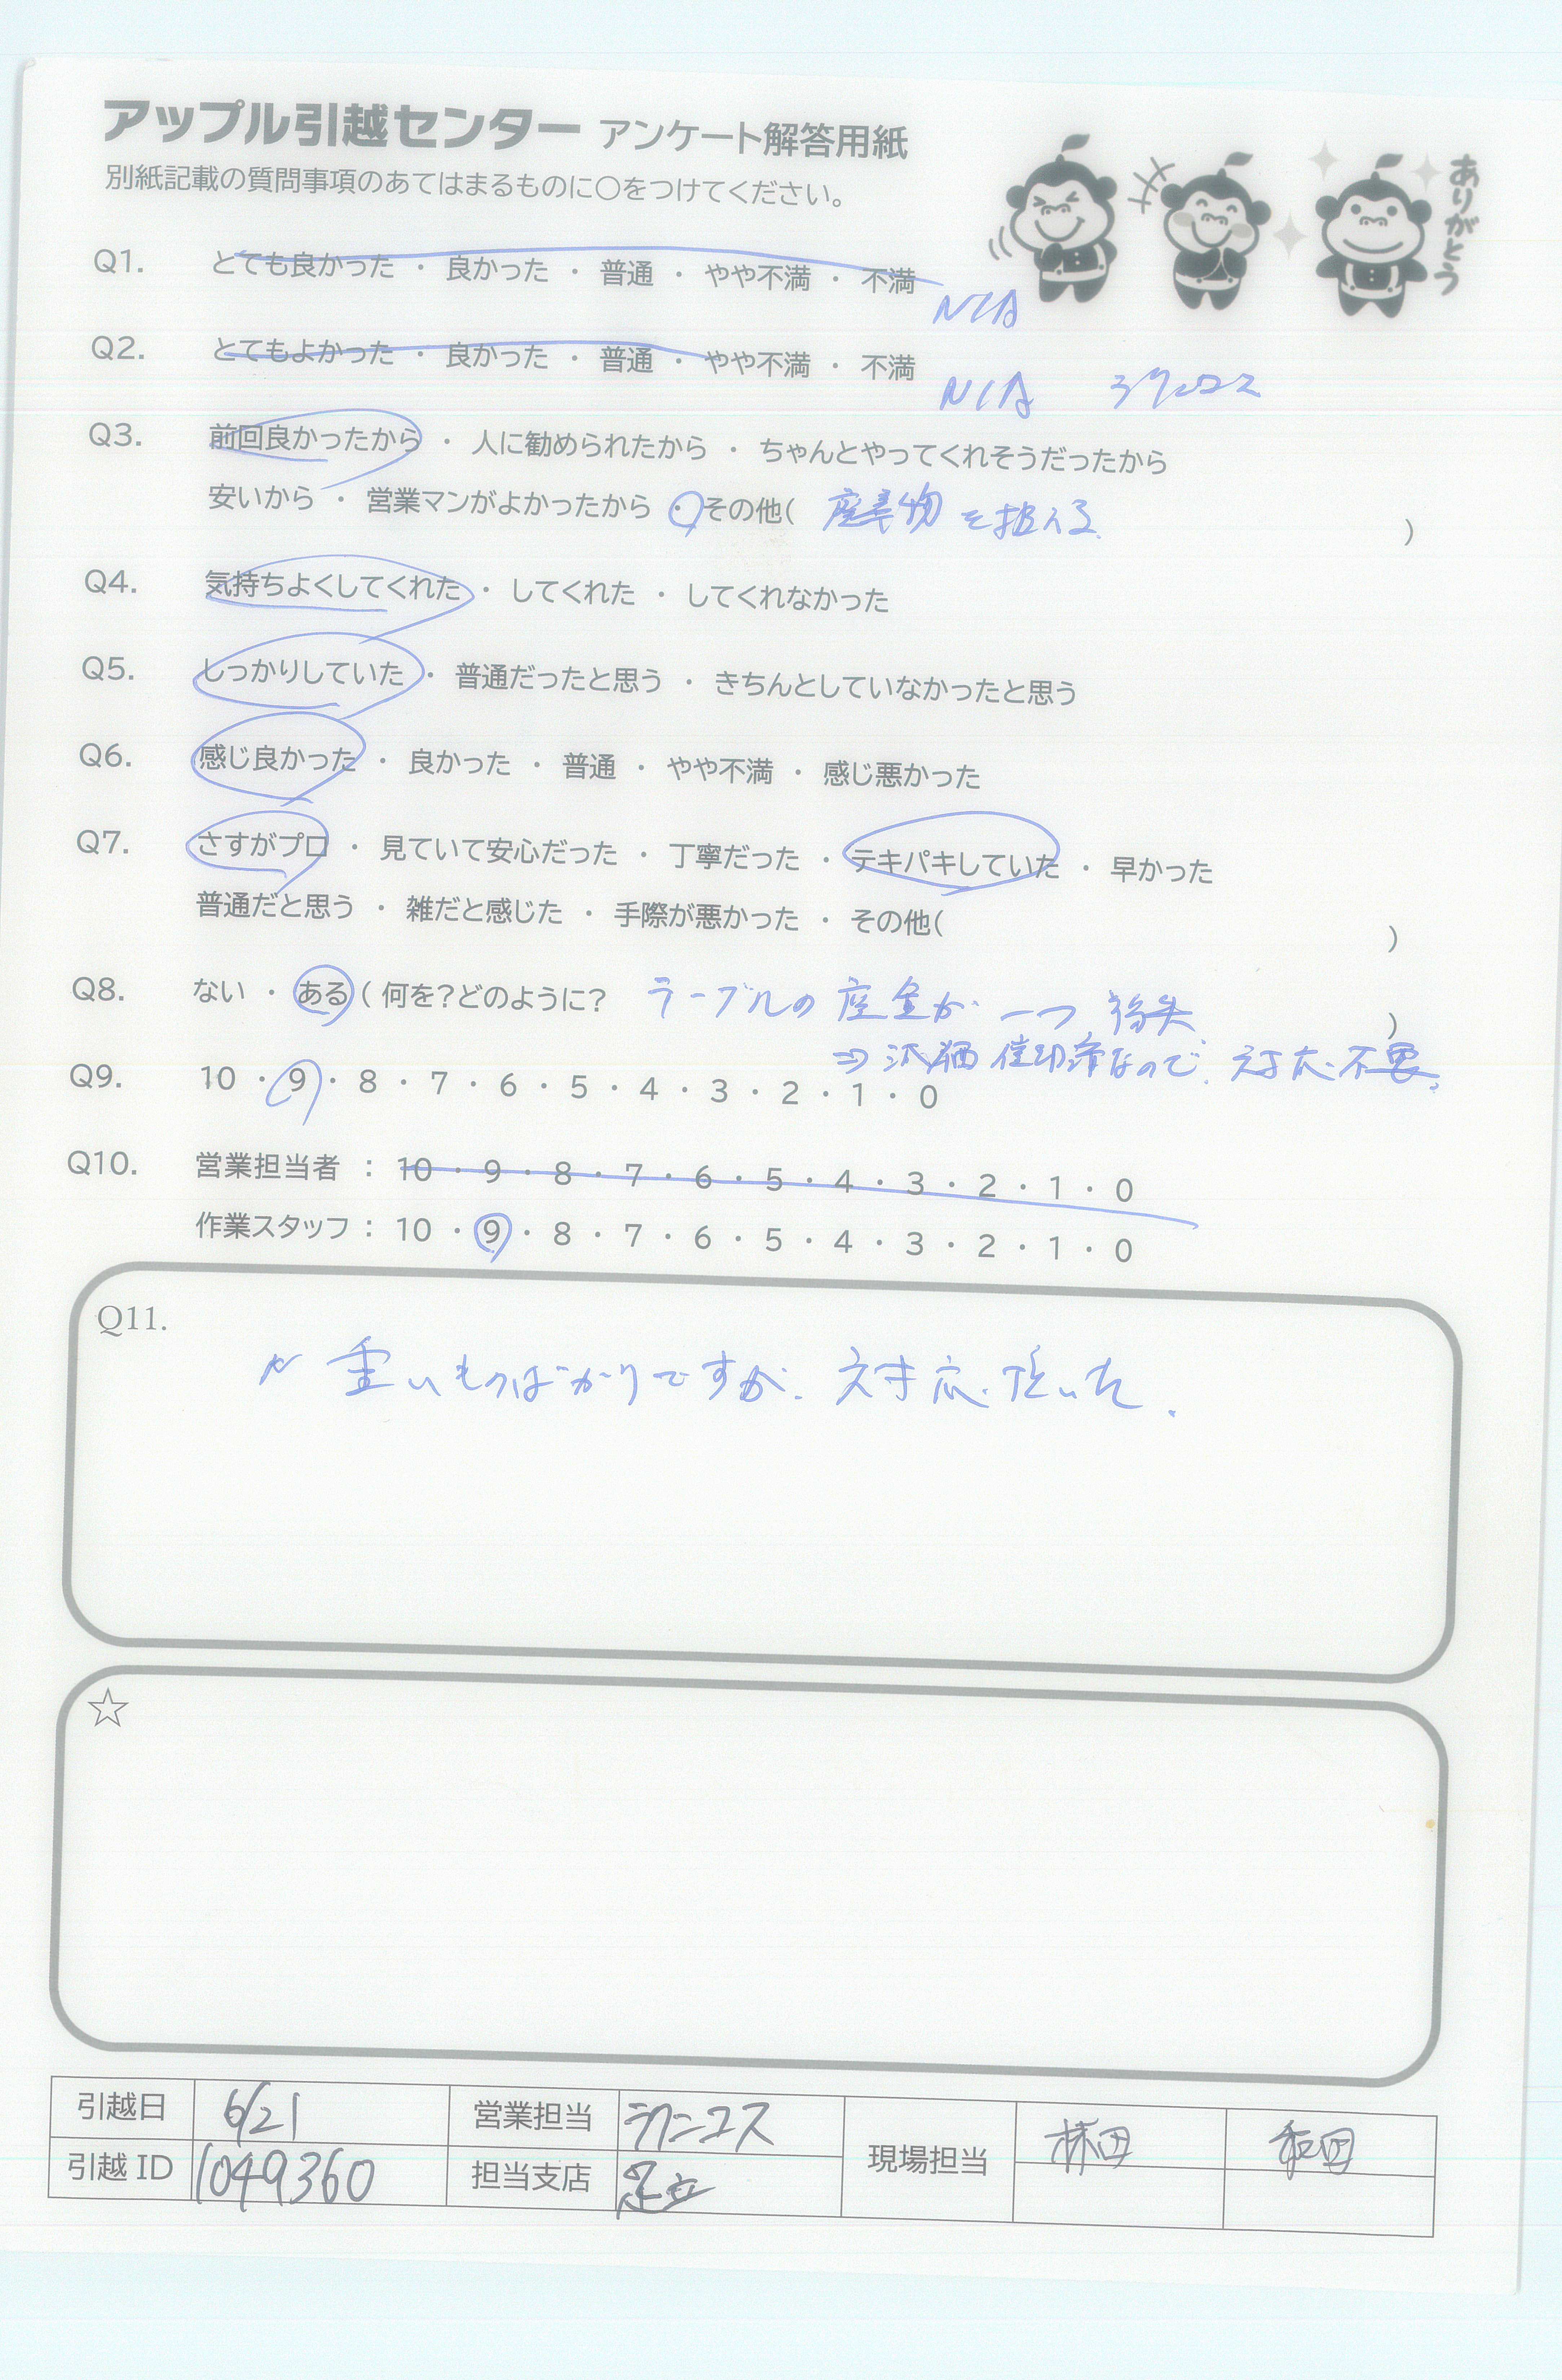 アップル引越センター アンケート解答用紙
別紙記載の質問事項のあてはまるものに○をつけてください。
ありがとう
Q1. とても良かった ・ 良かった ・ 普通 ・ やや不満 ・ 不満
N/A
Q2. とてもよかった ・ 良かった ・ 普通 ・ やや不満 ・ 不満
N/A
Q3. 前回良かったから ・ 人に勧められたから ・ ちゃんとやってくれそうだったから
安いから ・ 営業マンがよかったから ・ その他( 産業物を扱える )
Q4. 気持ちよくしてくれた ・ してくれた ・ してくれなかった
Q5. しっかりしていた ・ 普通だったと思う ・ きちんとしていなかったと思う
Q6. 感じ良かった ・ 良かった ・ 普通 ・ やや不満 ・ 感じ悪かった
Q7. さすがプロ ・ 見ていて安心だった ・ 丁寧だった ・ テキパキしていた ・ 早かった
普通だと思う ・ 雑だと感じた ・ 手際が悪かった ・ その他( )
Q8. ない ・ ある ( 何を?どのように? テーブルの座金が一つ紛失 )
⇒ なので、対応不要。
Q9. 10 ・ 9 ・ 8 ・ 7 ・ 6 ・ 5 ・ 4 ・ 3 ・ 2 ・ 1 ・ 0
Q10. 営業担当者 : 10 ・ 9 ・ 8 ・ 7 ・ 6 ・ 5 ・ 4 ・ 3 ・ 2 ・ 1 ・ 0
作業スタッフ : 10 ・ 9 ・ 8 ・ 7 ・ 6 ・ 5 ・ 4 ・ 3 ・ 2 ・ 1 ・ 0
Q11.
重いものばかりですが、対応頂いた。
☆
引越日 6/21 営業担当 現場担当 林田 和田
引越 ID 1049360 担当支店 足立